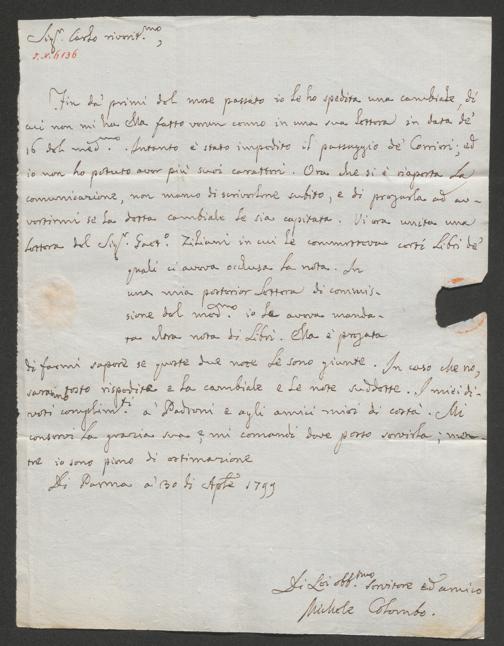 Sig.r Carlo riverit.mo,
Fin da' primi del mese passato io le ho spedita una cambiale, di
cui non mi ha Ella fatto verun cenno in una sua lettera in data de'
16 del med.mo. Intanto è stato impedito il passaggio de' Corrieri; ed
io non ho potuto aver più suoi caratteri. Ora che si è riaperta la
comunicazione, non manco di scriverlene subito, e di pregarla ad av-
vertirmi se la detta cambiale le sia capitata. Vi era unita una
lettera del Sig.r Gaet.o Ziliani in cui le commetteva certi Libri de'
quali ci aveva acclusa la nota. In
una mia posterior lettera di commis-
sione del med.mo io le aveva manda-
ta altra nota di Libri. Ella è pregata
di farmi sapere se queste due note le sono giunte. In caso che no,
saranno tosto rispedite e la cambiale e le note suddette. I miei di-
voti complim.ti a' Padroni e agli amici miei di costà. Mi
conservi la grazia sua e mi comandi dove posso servirla; men-
tre io sono pieno di estimazione
Di Parma a' 30 di Aple 1799
Di Lei obb.mo servitore ed amico
Michele Colombo.